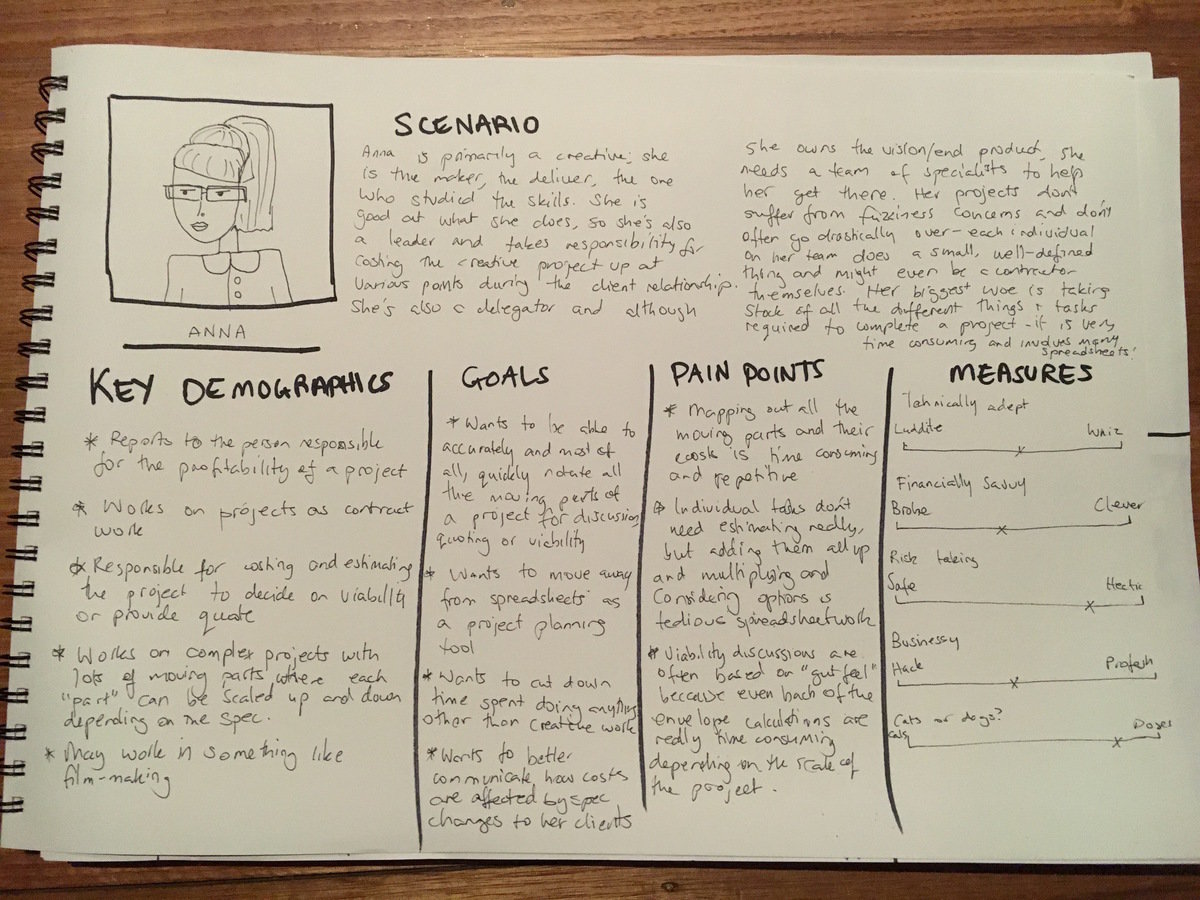 ANNA
SCENARIO
Anna is primarily a creative; she
is the maker, the deliver, the one
who studied the skills. She is
good at what she does, so she's also
a leader and takes responsibility for
costing the creative project up at
various points during the client relationship.
She's also a delegator and although
She owns the vision/end product, she
needs a team of specialists to help
her get there. Her projects don't
suffer from fuzziness concerns and don't
often go drastically over - each individual
on her team does a small, well-defined
thing and might even be a contractor
themselves. Her biggest woe is taking
stock of all the different things + tasks
required to complete a project - it is very
time consuming and involves many
spreadsheets!
KEY DEMOGRAPHICS
* Reports to the person responsible
for the profitability of a project
* Works on projects as contract
work
* Responsible for costing and estimating
the project to decide on viability
or provide quote
* Works on complex projects with
lots of moving parts where each
"part" can be scaled up and down
depending on the spec.
* May work in something like
film-making
GOALS
* Wants to be able to
accurately and most of
all, quickly notate all
the moving parts of
a project for discussion,
quoting or viability
* Wants to move away
from spreadsheets as
a project planning
tool
* Wants to cut down
time spent doing anything
other than creative work
* Wants to better
communicate how costs
are affected by spec
changes to her clients
PAIN POINTS
* Mapping out all the
moving parts and their
costs is time consuming
and repetitive
* Individual tasks don't
need estimating really,
but adding them all up
and multiplying and
considering options is
tedious spreadsheet work
* Viability discussions are
often based on "gut feel"
because even back of the
envelope calculations are
really time consuming
depending on the scale of
the project.
MEASURES
Technically adept
Luddite Whiz
Financially Savvy
Broke Clever
Risk taking
Safe Hectic
Businessy
Hack Profesh
Cats or dogs?
Cats Doges